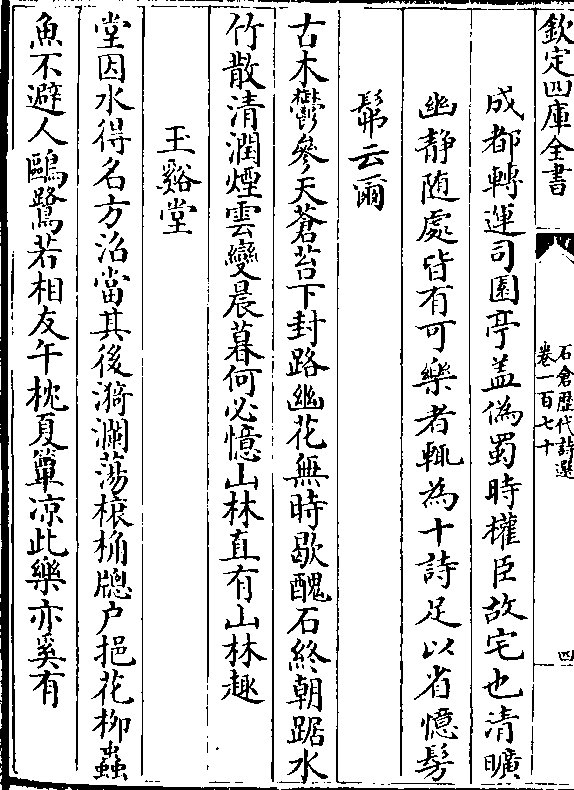 欽定四庫全書
石倉歷代詩選
卷一百七十
四
成都轉運司園亭盖偽蜀時權臣故宅也清曠
幽静随處皆有可樂者輒為十詩足以省憶髣
髴云爾
古木鬱參天蒼苔下封路幽花無時歇醜石終朝踞水
竹散清潤煙雲變晨暮何必憶山林直有山林趣
玉谿堂
堂因水得名方沼當其後漪瀾蕩榱桷牕户挹花柳蟲
魚不避人鷗鷺若相友午枕夏簟凉此樂亦奚有